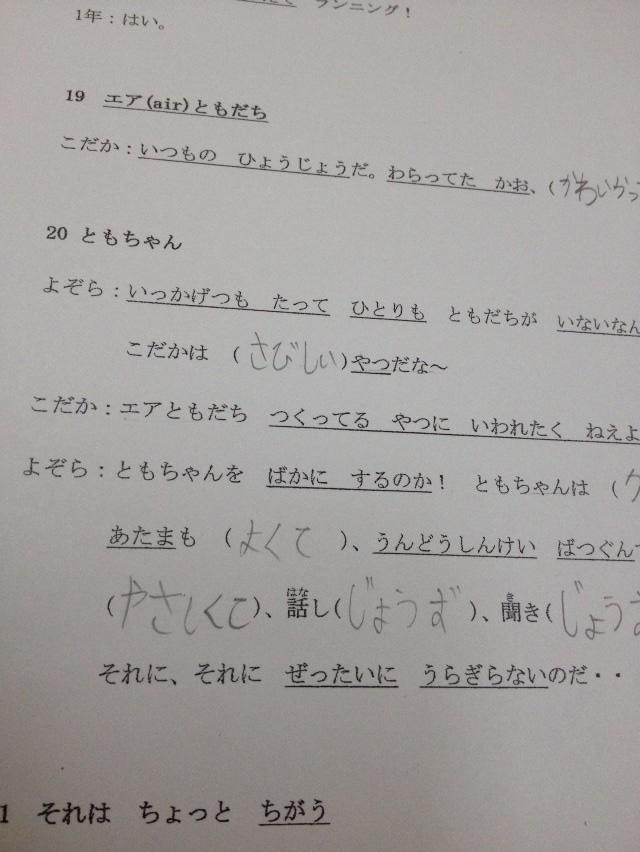 ランニング！
1年：はい。
19 エア(air)ともだち
こだか：いつもの ひょうじょうだ。わらってた かお、(かわいかっ
20 ともちゃん
よぞら：いっかげつも たって ひとりも ともだちが いないなん
こだかは (さびしい)やつだな〜
こだか：エアともだち つくってる やつに いわれたく ねえよ
よぞら：ともちゃんを ばかに するのか！ ともちゃんは (
あたまも (よくて )、うんどうしんけい ばつぐんで
(やさしくて)、話し(じょうず )、聞き(じょうず
はな き
それに、それに ぜったいに うらぎらないのだ・・
1 それは ちょっと ちがう